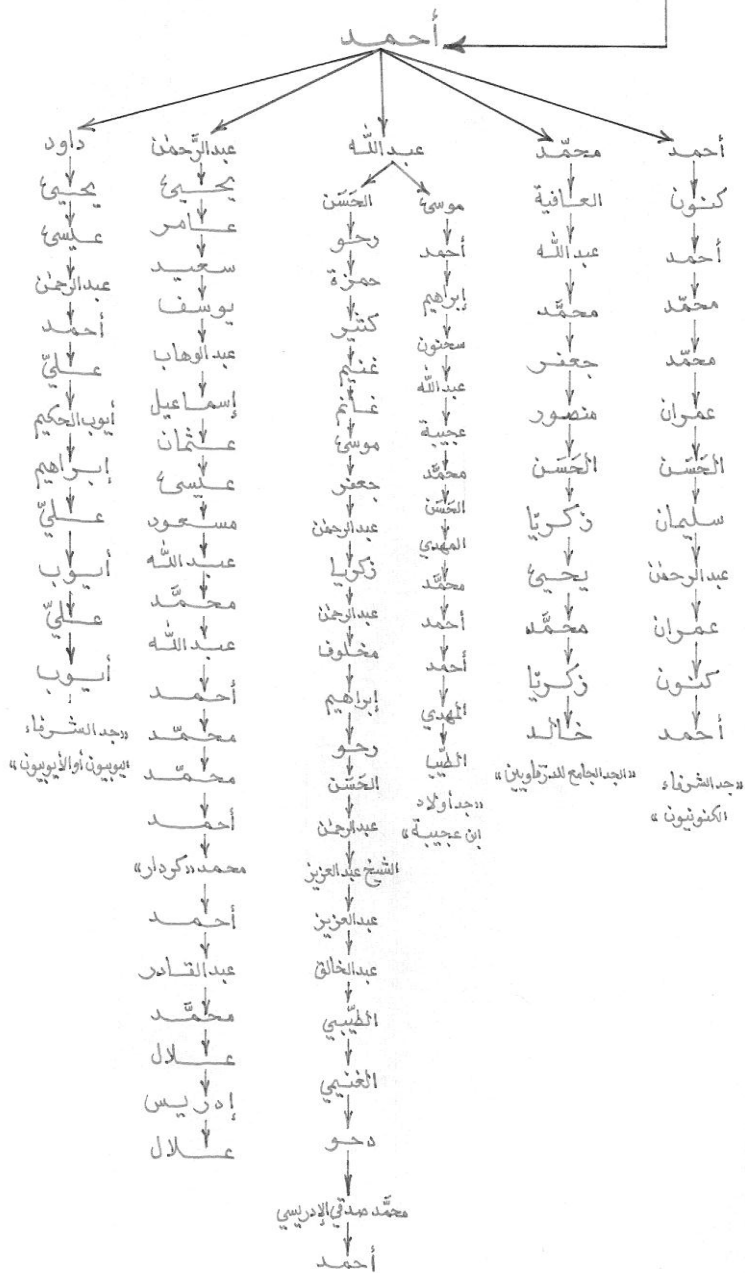 أحمد
أحمد
كنون
أحمد
محمّد
محمّد
عمران
الحَسَن
سليمان
عبدالرحمٰن
عمران
كنون
أحمد
«جد الشرفاء
الكنونيون»
محمّد
العافية
عبدالله
محمَّد
جعفر
منصور
الحَسَن
زكريّا
يحيىٰ
محمَّد
زكريّا
خالد
«الجد الجامع للدرقاويين»
عبدالله
موسىٰ
أحمد
إبراهيم
سحنون
عبدالله
عجيبة
محمَّد
الحَسَن
المهدي
محمَّد
أحمد
أحمد
المهدي
الطيِّب
«جد أولاد
ابن عجيبة»
الحَسَن
رحو
حمزة
كثير
غنيم
غانم
موسىٰ
جعفر
عبدالرحمٰن
زكريا
عبدالرحمٰن
مخلوف
إبراهيم
رحو
الحَسَن
عبدالرحمٰن
الشيخ عبدالعزيز
عبدالعزيز
عبدالخالق
الطيِّبي
الغنيمي
دحو
محمَّد صدقي الإدريسي
أحمد
عبدالرَّحمٰن
يحيىٰ
عامر
سعيد
يوسف
عبدالوهاب
إسماعيل
عثمان
عليسىٰ
مسعود
عبدالله
محمَّد
عبدالله
أحمد
محمّد
محمّد
أحمد
محمد «كردار»
أحمد
عبدالقادر
محمَّد
علال
إدريس
علال
داود
يحيىٰ
عليسىٰ
عبدالرحمٰن
أحمد
عليّ
أيوب الحكيم
إبراهيم
عليّ
أيوب
عليّ
أيوب
«جد الشرفاء
اليوبيون أو الأيوبيون»